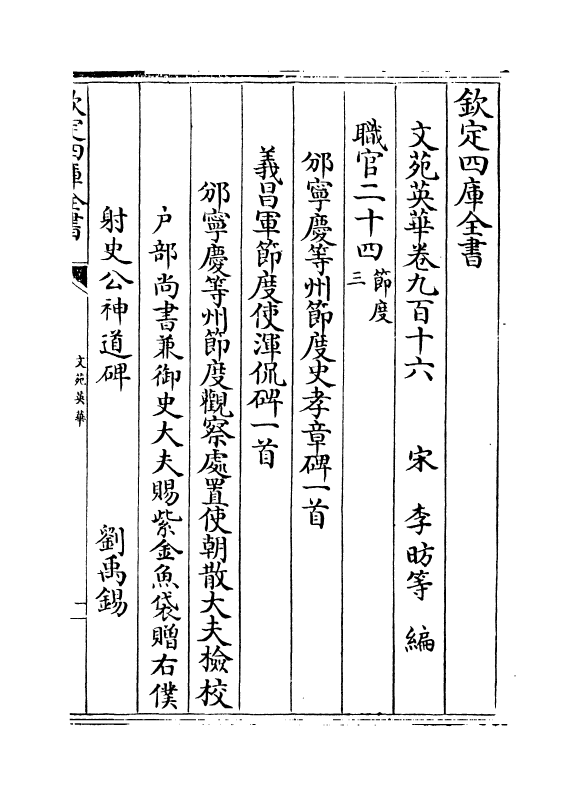 欽定四庫全書
文苑英華卷九百十六 宋 李昉等 編
職官二十四 節度三
邠寧慶等州節度史孝章碑一首
義昌軍節度使渾侃碑一首
邠寧慶等州節度觀察處置使朝散大夫檢校
户部尚書兼御史大夫賜紫金魚袋贈右僕
射史公神道碑 劉禹錫
欽定四庫全書
文苑英華